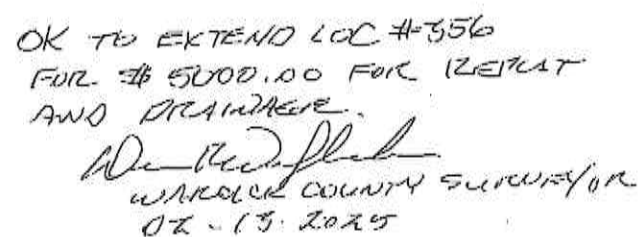 OK TO EXTEND LOC #356
FOR $ 5000.00 FOR REPLAT
AND DRAINAGE.
WARRICK COUNTY SURVEYOR
02.13.2025